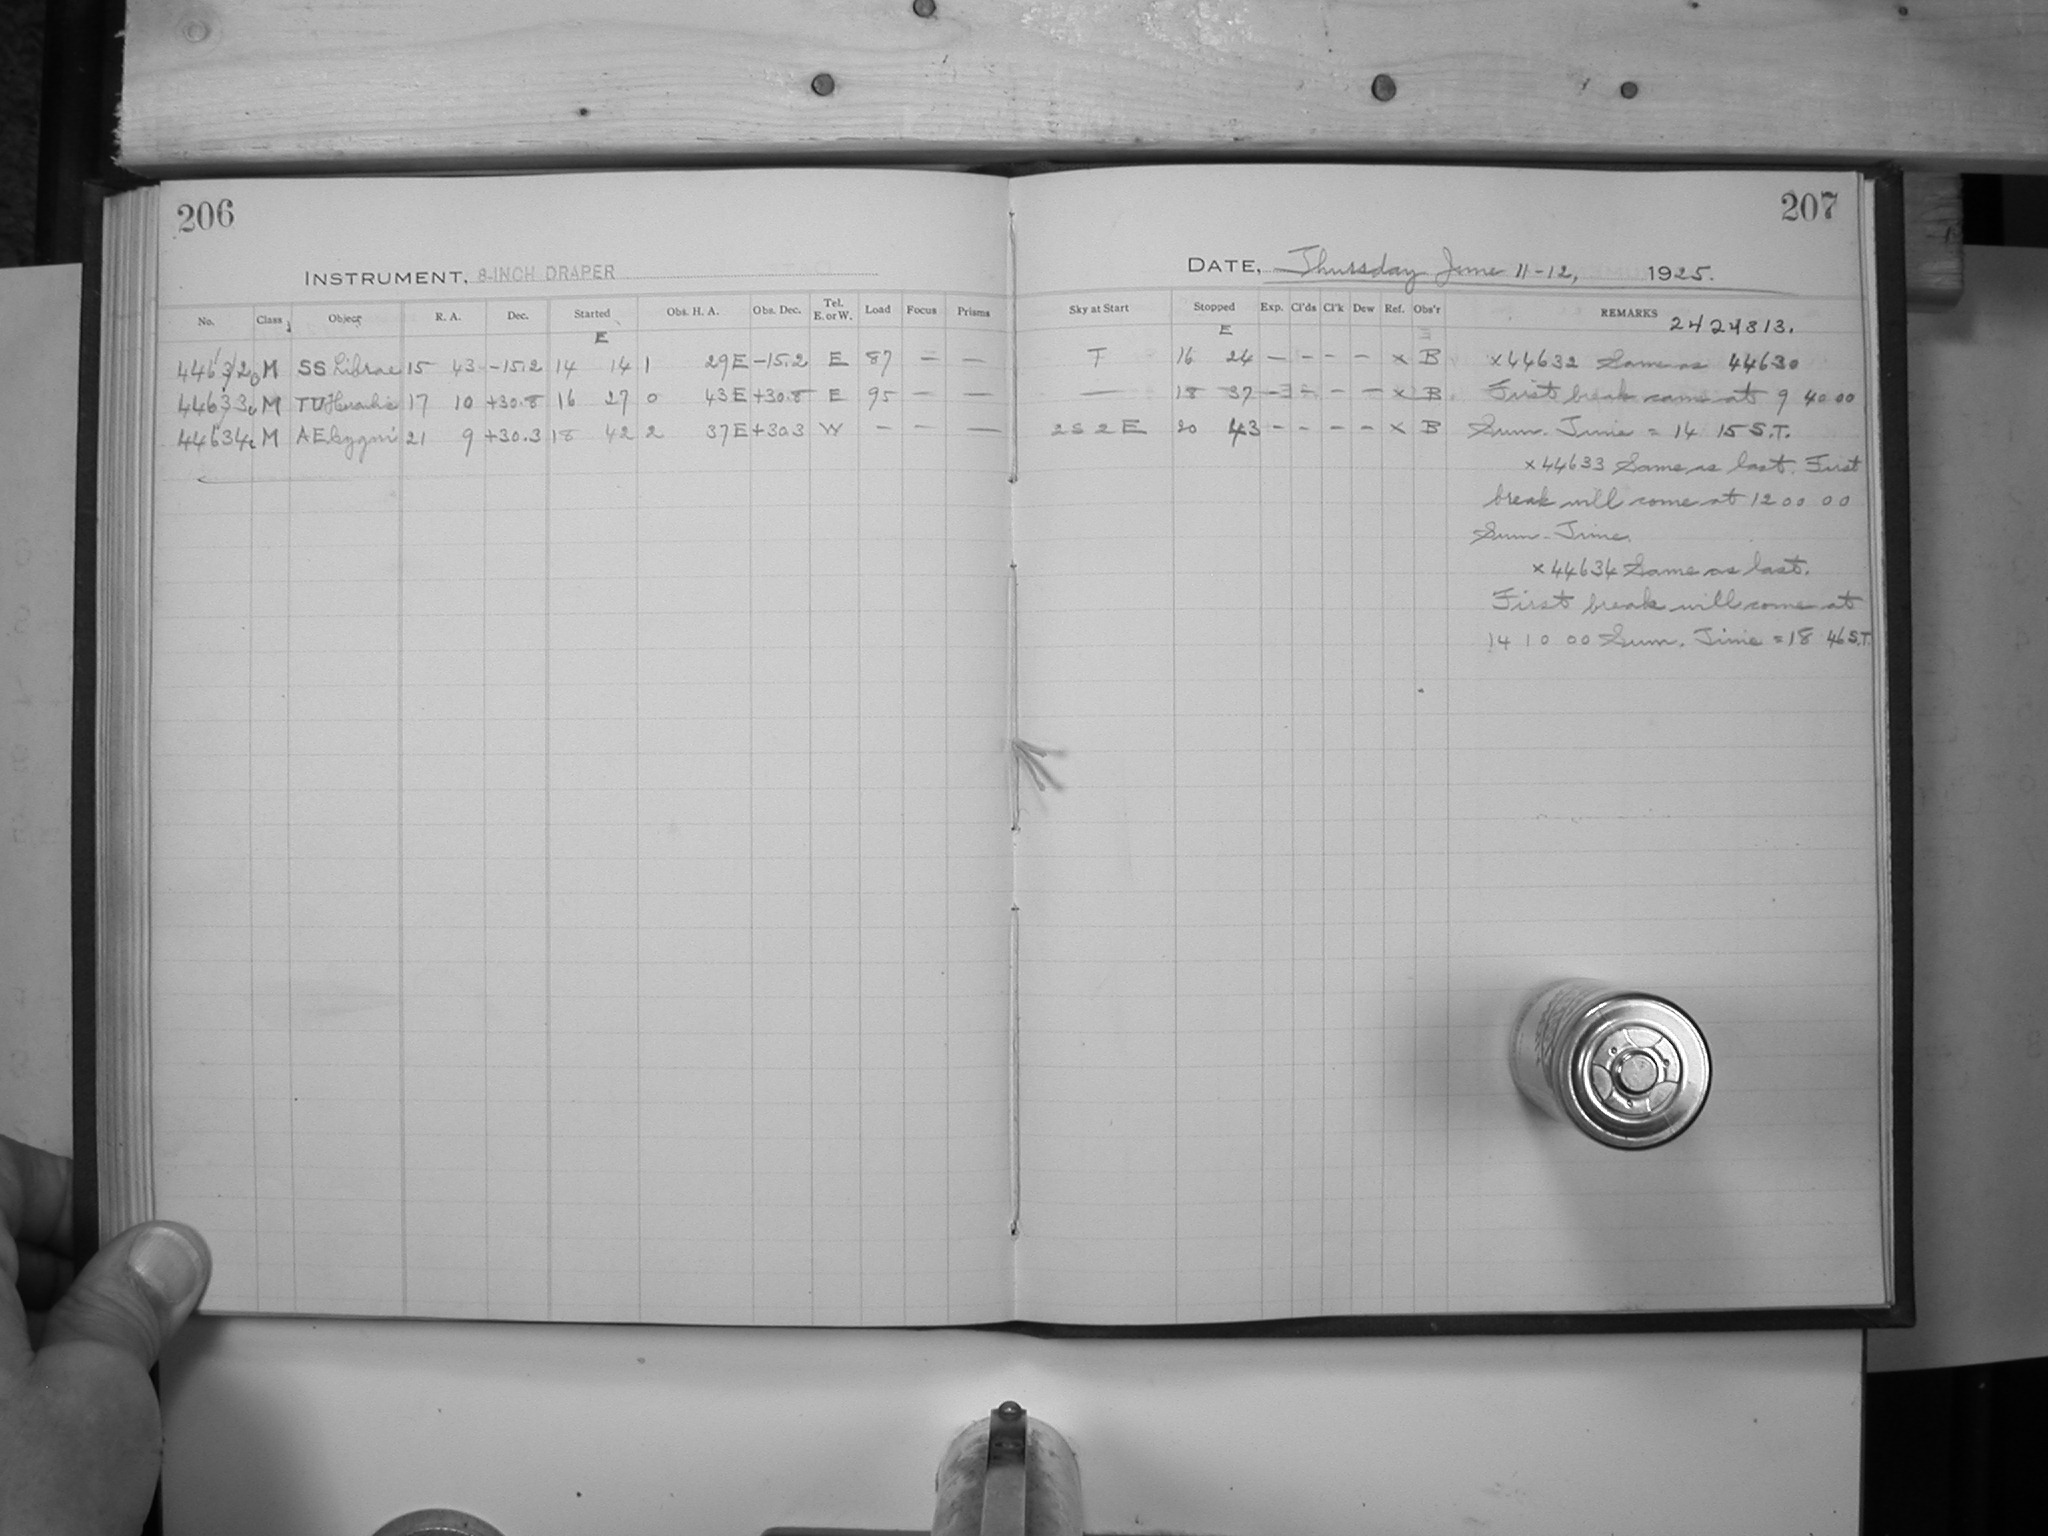 206
INSTRUMENT, 8-INCH DRAPER
No. Class Object R. A. Dec. Started Obs. H. A. Obs. Dec. Tel. E. or W. Load Focus Prisms
E
44632 M SS Librae 15 43 -15.2 14 14 1 29 E -15.2 E 87 — —
44633 M TU Herculis 17 10 +30.8 16 27 0 43 E +30.8 E 95 — —
44634 M AE Cygni 21 9 +30.3 18 42 2 37 E +30.3 W — — —
207
DATE, Thursday June 11-12, 1925.
Sky at Start Stopped Exp. Cl'ds Cl'k Dew Ref. Obs'r REMARKS 2424313.
E
F 16 24 — — — — x B x 44632 Same as 44630
— 18 37 — — — — x B First break came at 9 40 00
2 S 2 E 20 43 — — — — x B Sum. Time = 14 15 S.T.
x 44633 Same as last. First
break will come at 12 00 00
Sum. Time.
x 44634 Same as last.
First break will come at
14 10 00 Sum. Time = 18 46 S.T.